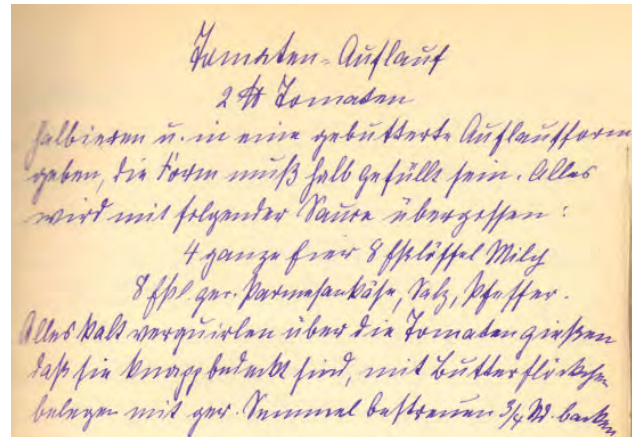 Tomaten-Auflauf
2 ℔ Tomaten
halbieren u. in eine gebutterte Auflaufform
geben, die Form muß halb gefüllt sein. Alles
wird mit folgender Sauce übergossen:
4 ganze Eier 8 Eßlöffel Milch
8 Eßl ger. Parmesankäse, Salz, Pfeffer.
Alles kalt verquirlen über die Tomaten gießen
daß sie knapp bedeckt sind, mit Butterflöckchen
belegen mit ger. Semmel bestreuen 3/4 Std. backen